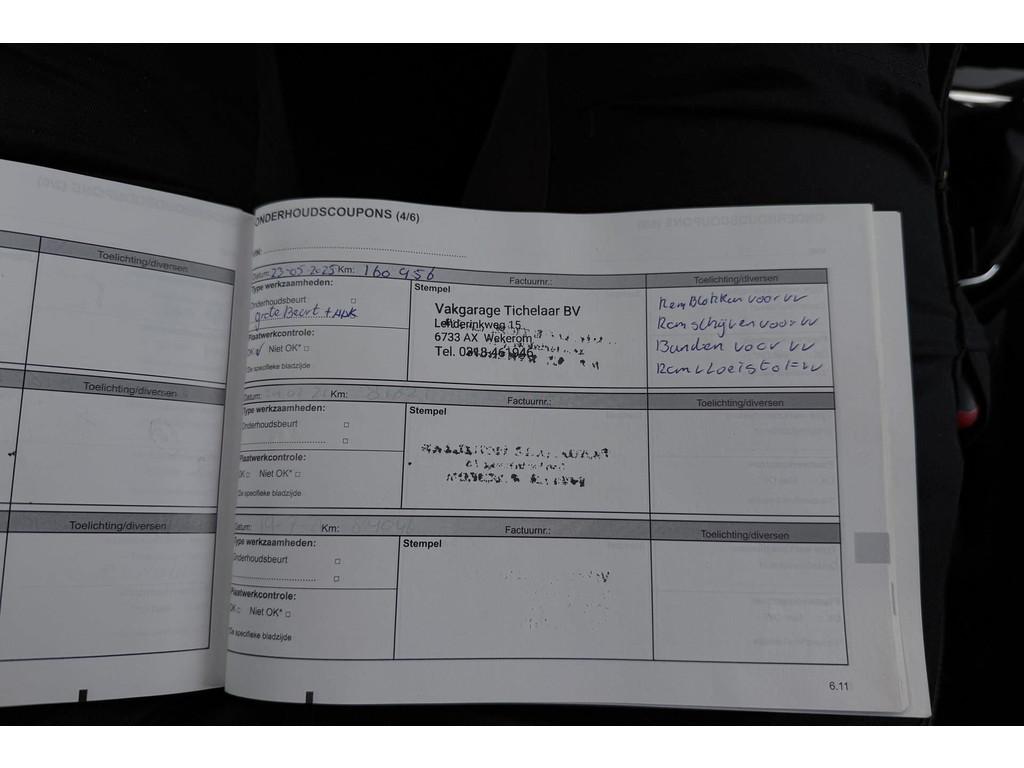 ONDERHOUDSCOUPONS (4/6)
Toelichting/diversen
Toelichting/diversen
Toelichting/diversen
Datum: 23-05 2025 Km: 160 956
Factuurnr.:
Toelichting/diversen
Type werkzaamheden:
Onderhoudsbeurt
grote Beurt + APK
Plaatwerkcontrole:
OK Niet OK*
Zie specifieke bladzijde
Stempel
Vakgarage Tichelaar BV
Lenderinkweg 15
6733 AX Wekerom
Tel. 0318-461946
Remblokken voor vv
Remschijven voor vv
Banden voor vv
Remvloeistof vv
Datum: Km:
Factuurnr.:
Toelichting/diversen
Type werkzaamheden:
Onderhoudsbeurt
Plaatwerkcontrole:
OK Niet OK*
Zie specifieke bladzijde
Stempel
Datum: Km:
Factuurnr.:
Toelichting/diversen
Type werkzaamheden:
Onderhoudsbeurt
Plaatwerkcontrole:
OK Niet OK*
Zie specifieke bladzijde
Stempel
6.11